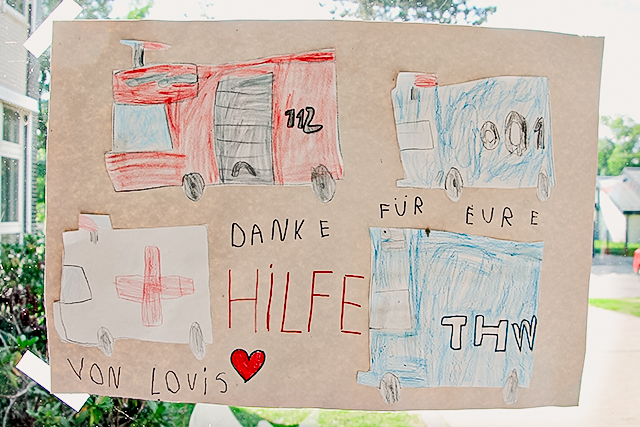 112
001
DANKE FÜR EURE
HILFE
THW
VON LOUIS